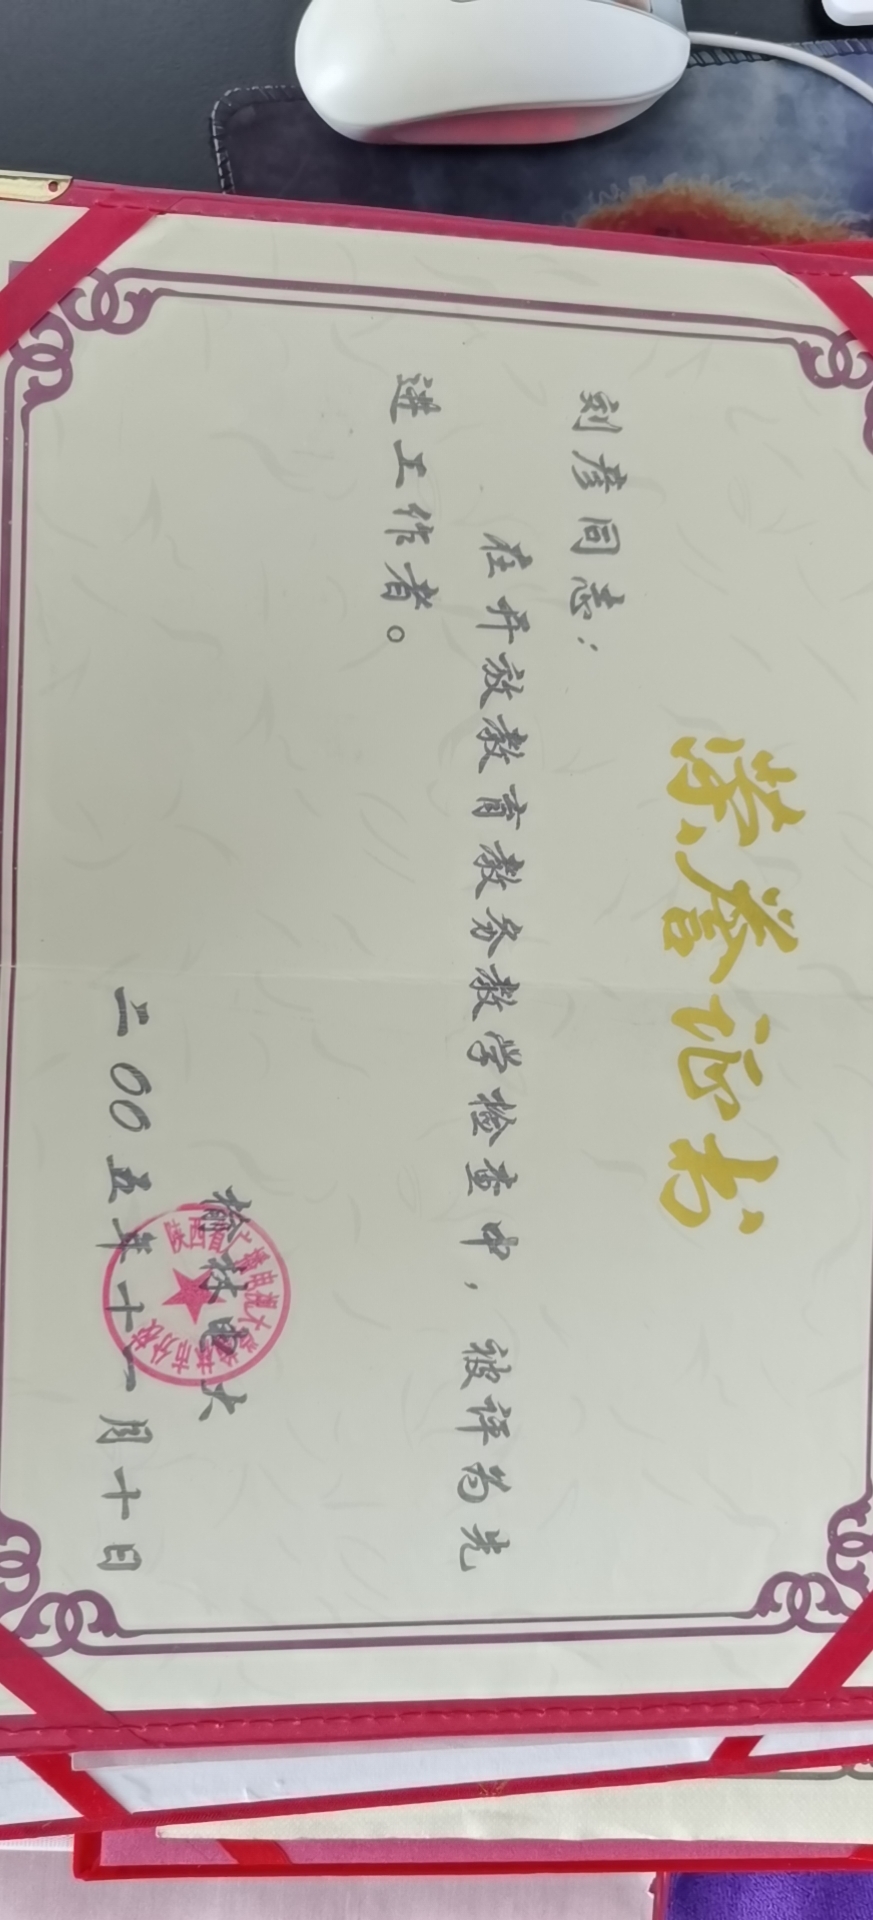 荣誉证书
刘彦同志：
在开放教育教务教学检查中，被评为先
进工作者。
榆林电大
二00五年十一月十日
陕西省广播电视大学榆林市分校